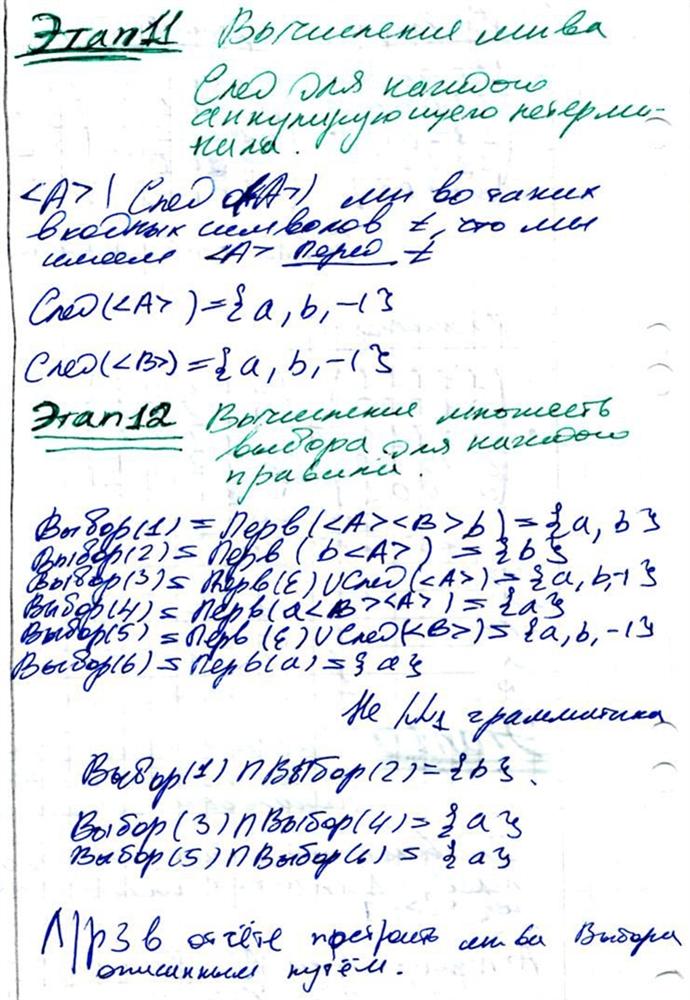 Этап 11 Вычисление мн-ва
След для каждого
аннулирующего нетерми-
нала.
<A> | След (<A>) мн-во таких
входных символов t, что мы
имеем <A> Перед t
След(<A>) = {a, b, -|}
След(<B>) = {a, b, -|}
Этап 12 Вычисление множеств
выбора для каждого
правила.
Выбор(1) = Перв(<A><B>b) = {a, b}
Выбор(2) = Перв (b<A>) = {b}
Выбор(3) = Перв(ε) ∪ След(<A>) = {a, b, -|}
Выбор(4) = Перв(a<B><A>) = {a}
Выбор(5) = Перв (ε) ∪ След(<B>) = {a, b, -|}
Выбор(6) = Перв(a) = {a}
Не LL1 грамматика
Выбор(1) ∩ Выбор(2) = {b}.
Выбор(3) ∩ Выбор(4) = {a}
Выбор(5) ∩ Выбор(6) = {a}
Л/р 3 в отчёте построить мн-ва Выбора
описанным путём.